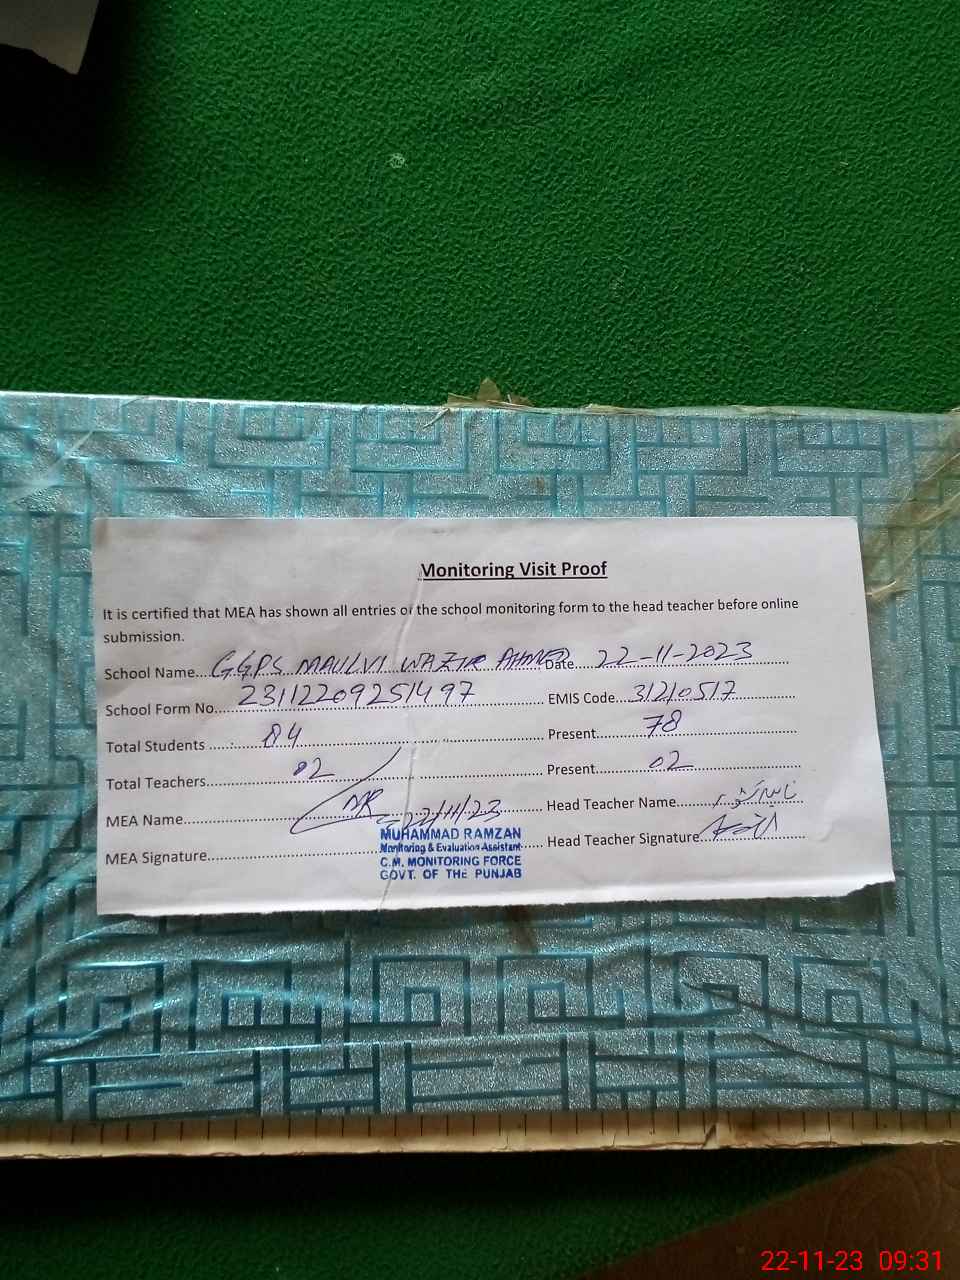 Monitoring Visit Proof
It is certified that MEA has shown all entries of the school monitoring form to the head teacher before online
submission.
School Name....GGPS MAULVI WAZIR AHMED Date....22-11-2023
School Form No....23112209251497 EMIS Code....31210517
Total Students....84 Present....78
Total Teachers....02 Present....02
MEA Name.... Head Teacher Name....
22/11/23
MEA Signature.... Head Teacher Signature....
MUHAMMAD RAMZAN
Monitoring & Evaluation Assistant
C.M. MONITORING FORCE
GOVT. OF THE PUNJAB
22-11-23 09:31